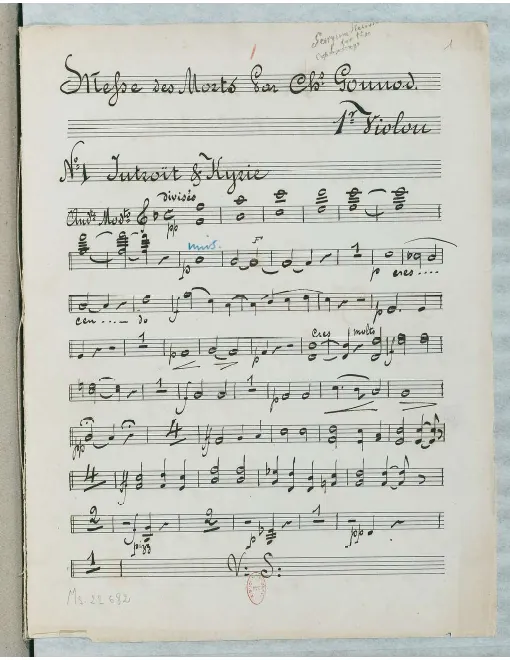 1
Messe des Morts par Ch. Gounod.
1r Violon
No 1 Introït & Kyrie
divisés
Andte Modto
pp
unis.
p
1
p cres....
cen...- do
f
p
1
p
p
cres molto
f
1
f
1
p
pp
4
f
4
2
pizz
2
p
1
pp
1
V. S.
Ms 22 682